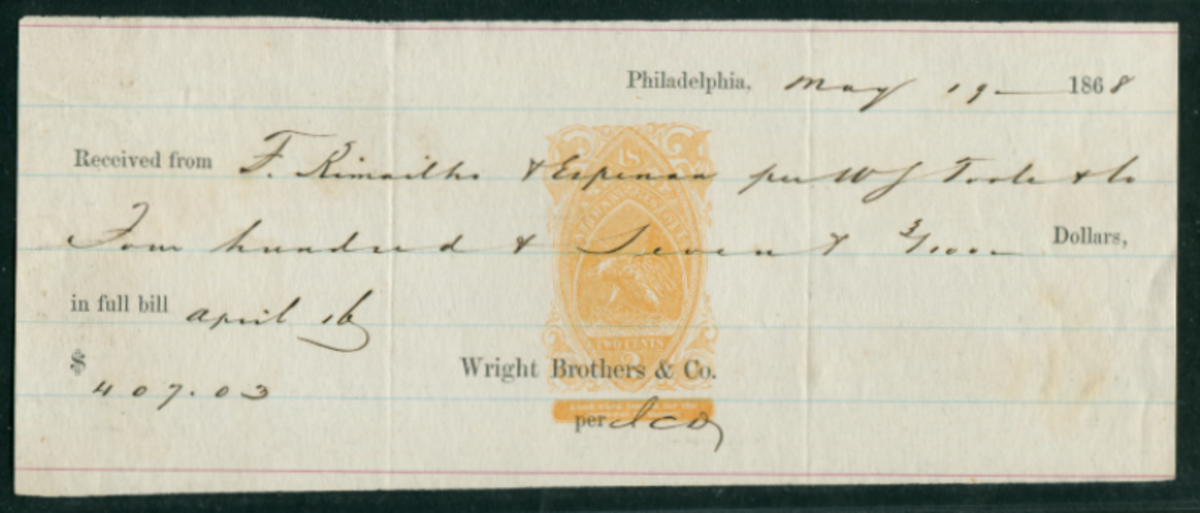 Philadelphia, May 19 1868
Received from F. & per W J Toole & Co
Four hundred & Seven & 3/100 Dollars,
in full bill april 16
$ 407.03
TWO CENTS
Wright Brothers & Co.
per